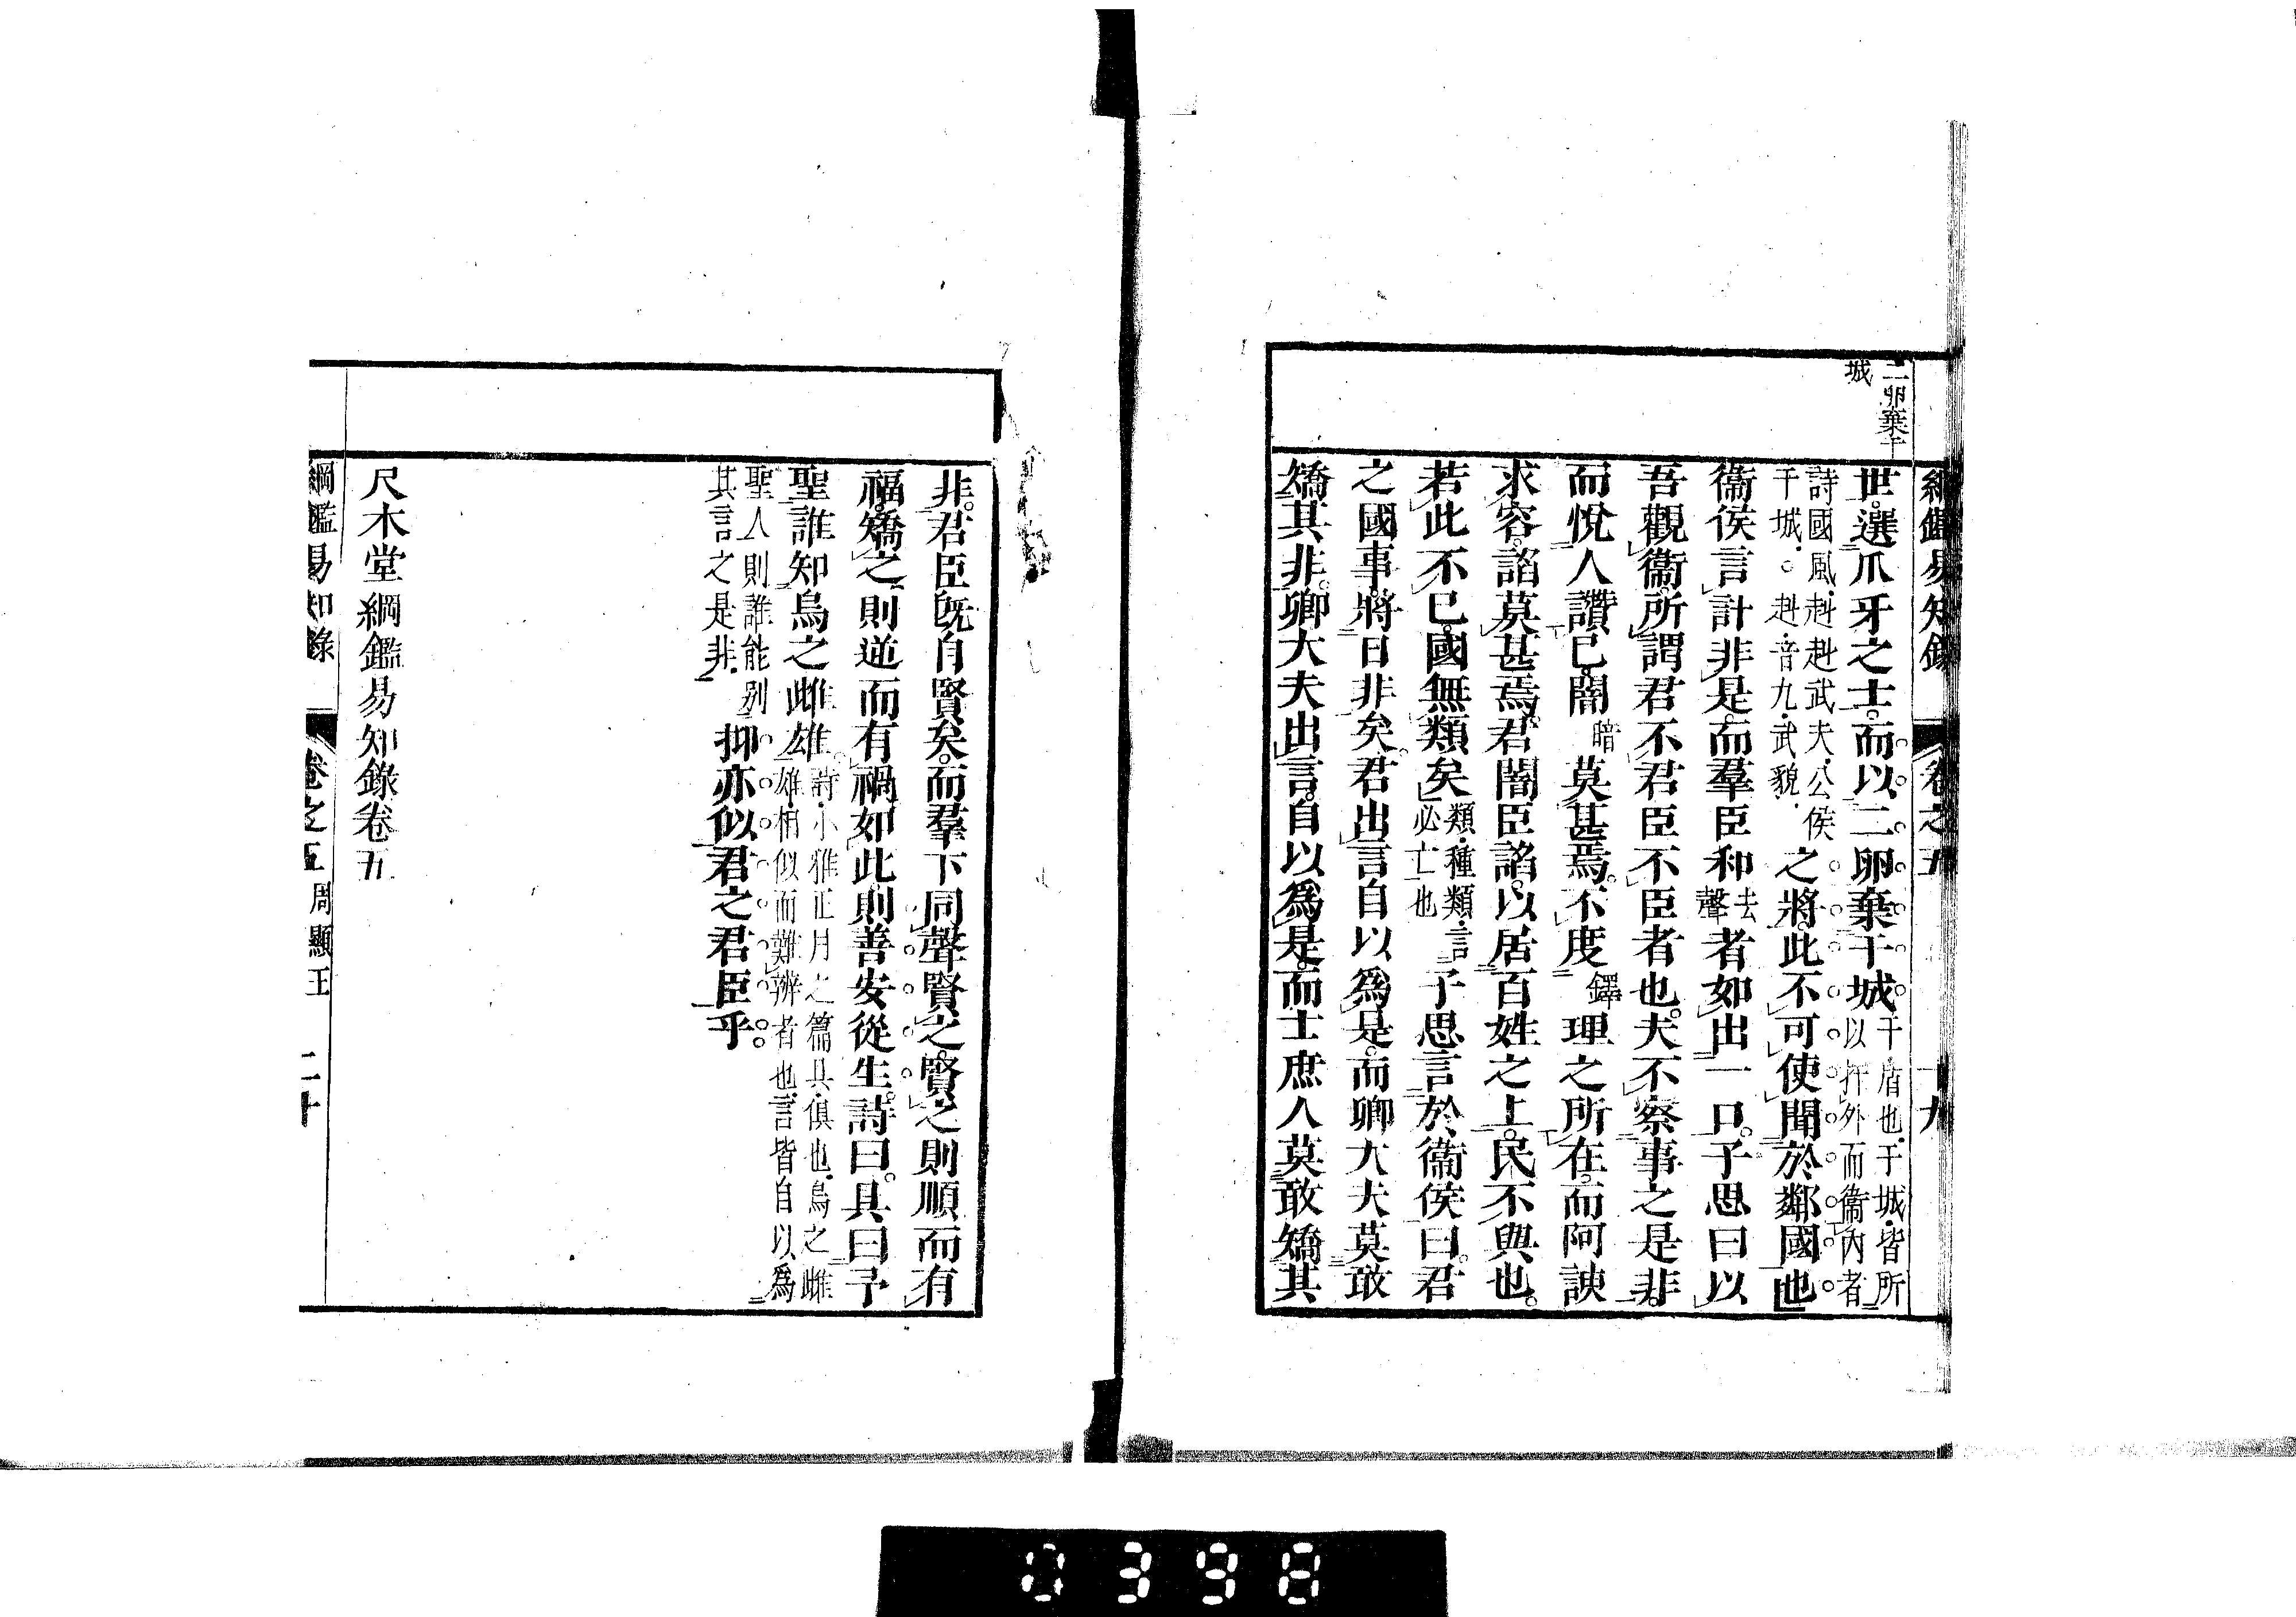 綱鑑易知錄 卷之五 十九
二卵棄干
城
世選爪牙之士而以二卵棄干城干盾也干城皆所
以扞外而衞內者
詩國風赳赳武夫公侯
干城○赳音九武貌之將此不可使聞於鄰國也
衞侯言計非是而羣臣和去
聲者如出一口子思曰以
吾觀衞所謂君不君臣不臣者也夫不察事之是非
而悅人讚已闇暗莫甚焉不度鐸理之所在而阿諛
求容諂莫甚焉君闇臣諂以居百姓之上民不與也
若此不已國無類矣類種類言
必亡也子思言於衞侯曰君
之國事將日非矣君出言自以爲是而卿大夫莫敢
矯其非卿大夫出言自以爲是而士庶人莫敢矯其
非君臣旣自賢矣而羣下同聲賢之賢之則順而有
福矯之則逆而有禍如此則善安從生詩曰具曰予
聖誰知烏之雌雄詩小雅正月之篇具俱也烏之雌
雄相似而難辨者也言皆自以爲
聖人則誰能別
其言之是非抑亦似君之君臣乎
尺木堂綱鑑易知錄卷五
綱鑑易知錄 卷之五 周顯王 二十
0398